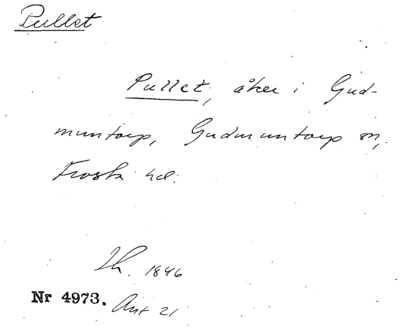 Pullet
Pullet, åker i Gud-
muntorp, Gudmuntorp sn,
Frosta hd.
1846
Nr 4973. Ant 21